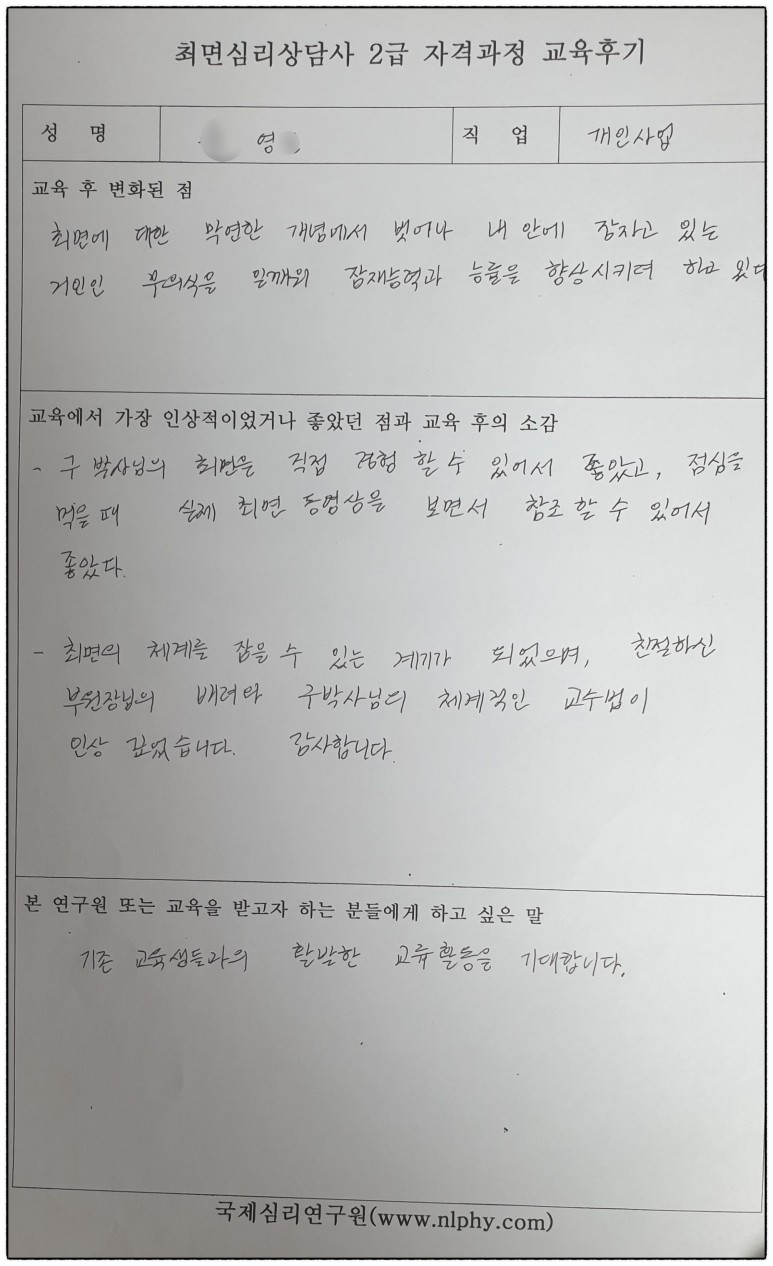 최면심리상담사 2급 자격과정 교육후기
성 명 영 직 업 개인사업
교육 후 변화된 점
최면에 대한 막연한 개념에서 벗어나 내 안에 잠자고 있는
거인인 무의식을 일깨워 잠재능력과 능률을 향상시키려 하고 있다
교육에서 가장 인상적이었거나 좋았던 점과 교육 후의 소감
- 구 박사님의 최면을 직접 경험 할 수 있어서 좋았고, 점심을
먹을 때 실제 최면 동영상을 보면서 참조 할 수 있어서
좋았다.
- 최면의 체계를 잡을 수 있는 계기가 되었으며, 친절하신
부원장님의 배려와 구박사님의 체계적인 교수법이
인상 깊었습니다. 감사합니다.
본 연구원 또는 교육을 받고자 하는 분들에게 하고 싶은 말
기존 교육생들과의 활발한 교류활동을 기대합니다.
국제심리연구원(www.nlphy.com)